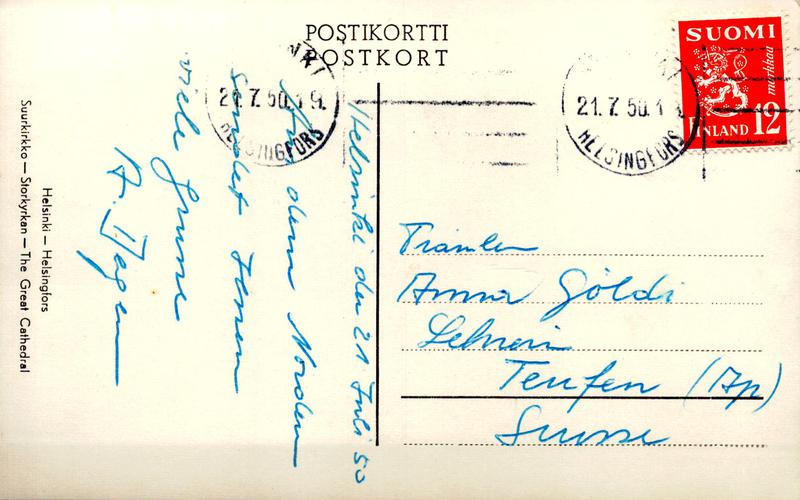 POSTIKORTTI
POSTKORT
SUOMI
markkaa
FINLAND 12
21.7.50.19.
HELSINGFORS
21.7.50.1
HELSINGFORS
Helsinki den 21. Juli 50
Aus dem Norden
sendet Ihnen
viele Grüsse
A. Hagen
Fräulein
Anna Göldi
Lehrerin
Teufen (Ap)
Suisse
Helsinki — Helsingfors
Suurkirkko — Storkyrkan — The Great Cathedral